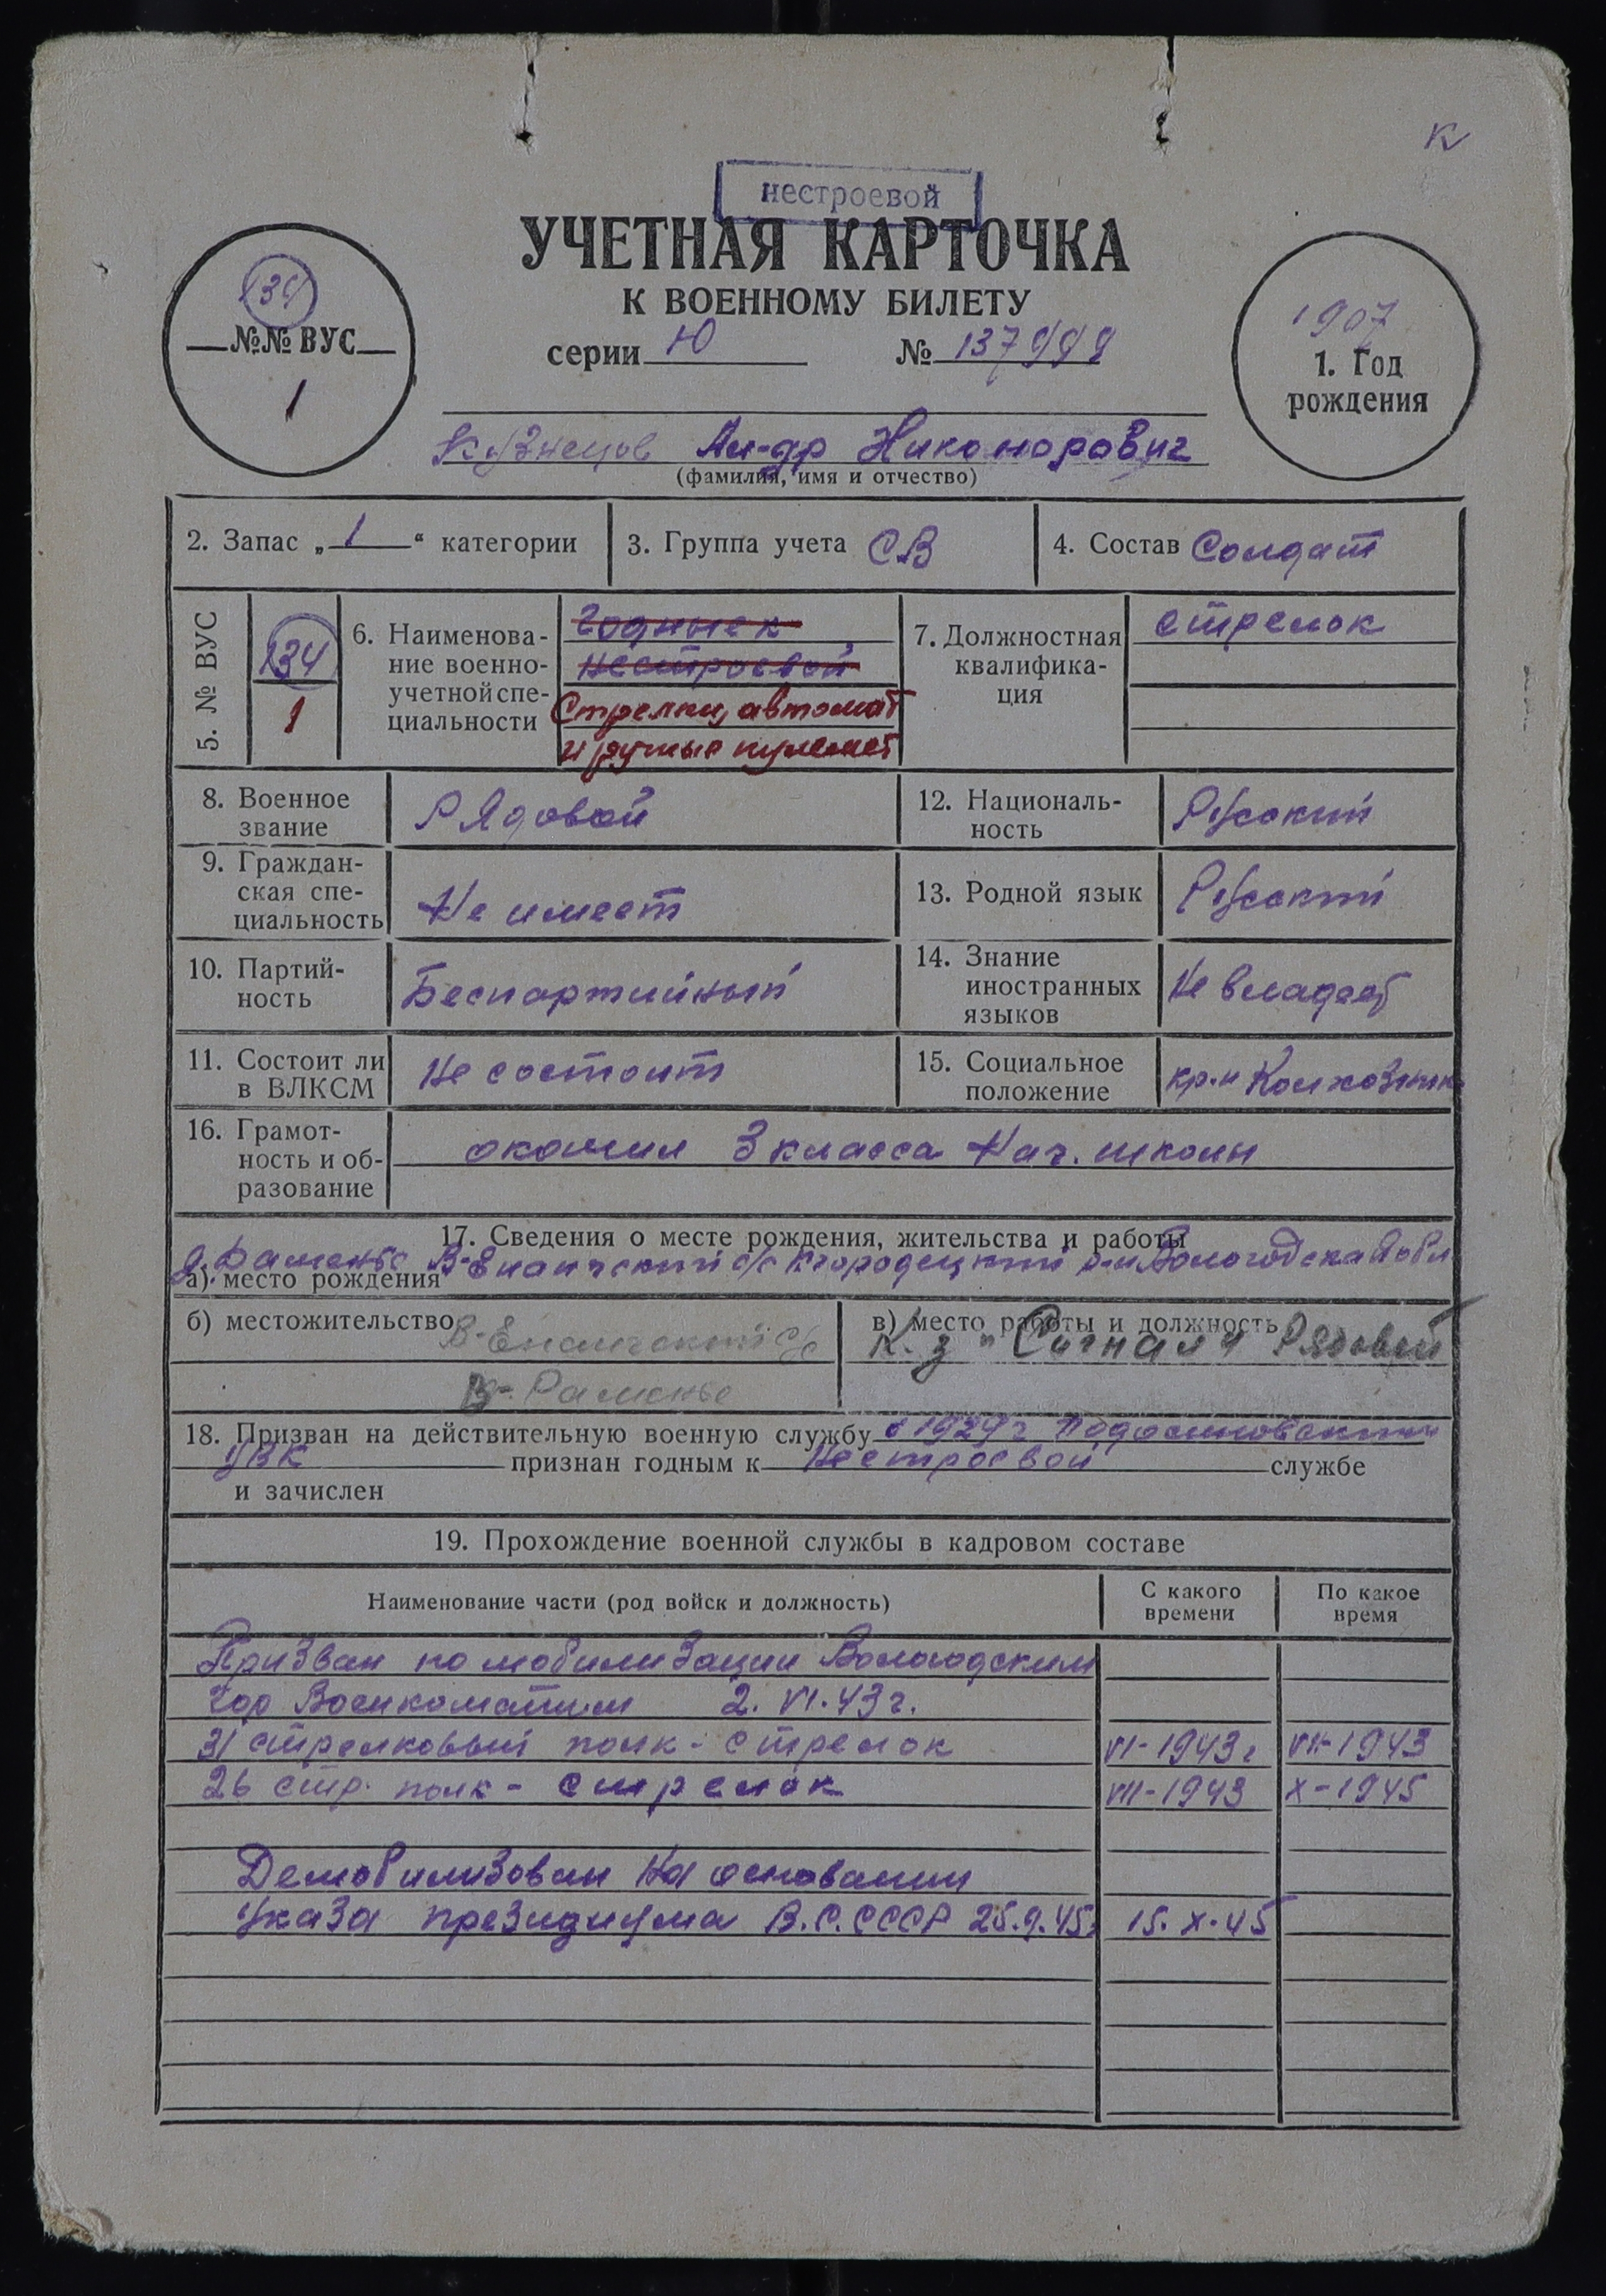 К
нестроевой
УЧЕТНАЯ КАРТОЧКА
К ВОЕННОМУ БИЛЕТУ
серии Ю № 137999
134
№№ ВУС
1
1907
1. Год
рождения
Кузнецов Ал-др Никонорович
(фамилия, имя и отчество)
2. Запас „1“ категории
3. Группа учета СВ
4. Состав Солдат
5. № ВУС
134
1
6. Наименова-
ние военно-
учетной спе-
циальности
Годные к
нестроевой
Стрелки, автомат
и ручные пулемет
7. Должностная
квалифика-
ция
стрелок
8. Военное
звание
Рядовой
12. Националь-
ность
Русский
9. Граждан-
ская спе-
циальность
Не имеет
13. Родной язык
Русский
10. Партий-
ность
Беспартийный
14. Знание
иностранных
языков
Не владеет
11. Состоит ли
в ВЛКСМ
Не состоит
15. Социальное
положение
кр-н Колхозник
16. Грамот-
ность и об-
разование
окончил 3 класса Нач. школы
17. Сведения о месте рождения, жительства и работы
д. Раменье В-Ентальский с/с Кичгородецкий р-н Вологодская обл
а) место рождения
б) местожительство В-Ентальский с/с
В-Раменье
в) место работы и должность
К-з "Сигнал" Рядовой
18. Призван на действительную военную службу в 1929 г Подосиновским
УВК признан годным к Нестроевой службе
и зачислен
19. Прохождение военной службы в кадровом составе
Наименование части (род войск и должность)
С какого
времени
По какое
время
Призван по мобилизации Вологодским
Гор Военкоматом 2. VI. 43 г.
31 стрелковый полк - стрелок VI-1943 г VII-1943
26 стр. полк - стрелок VII-1943 X-1945
Демобилизован на основании
Указа президиума В.С.СССР 25.9.45 г 15. X. 45